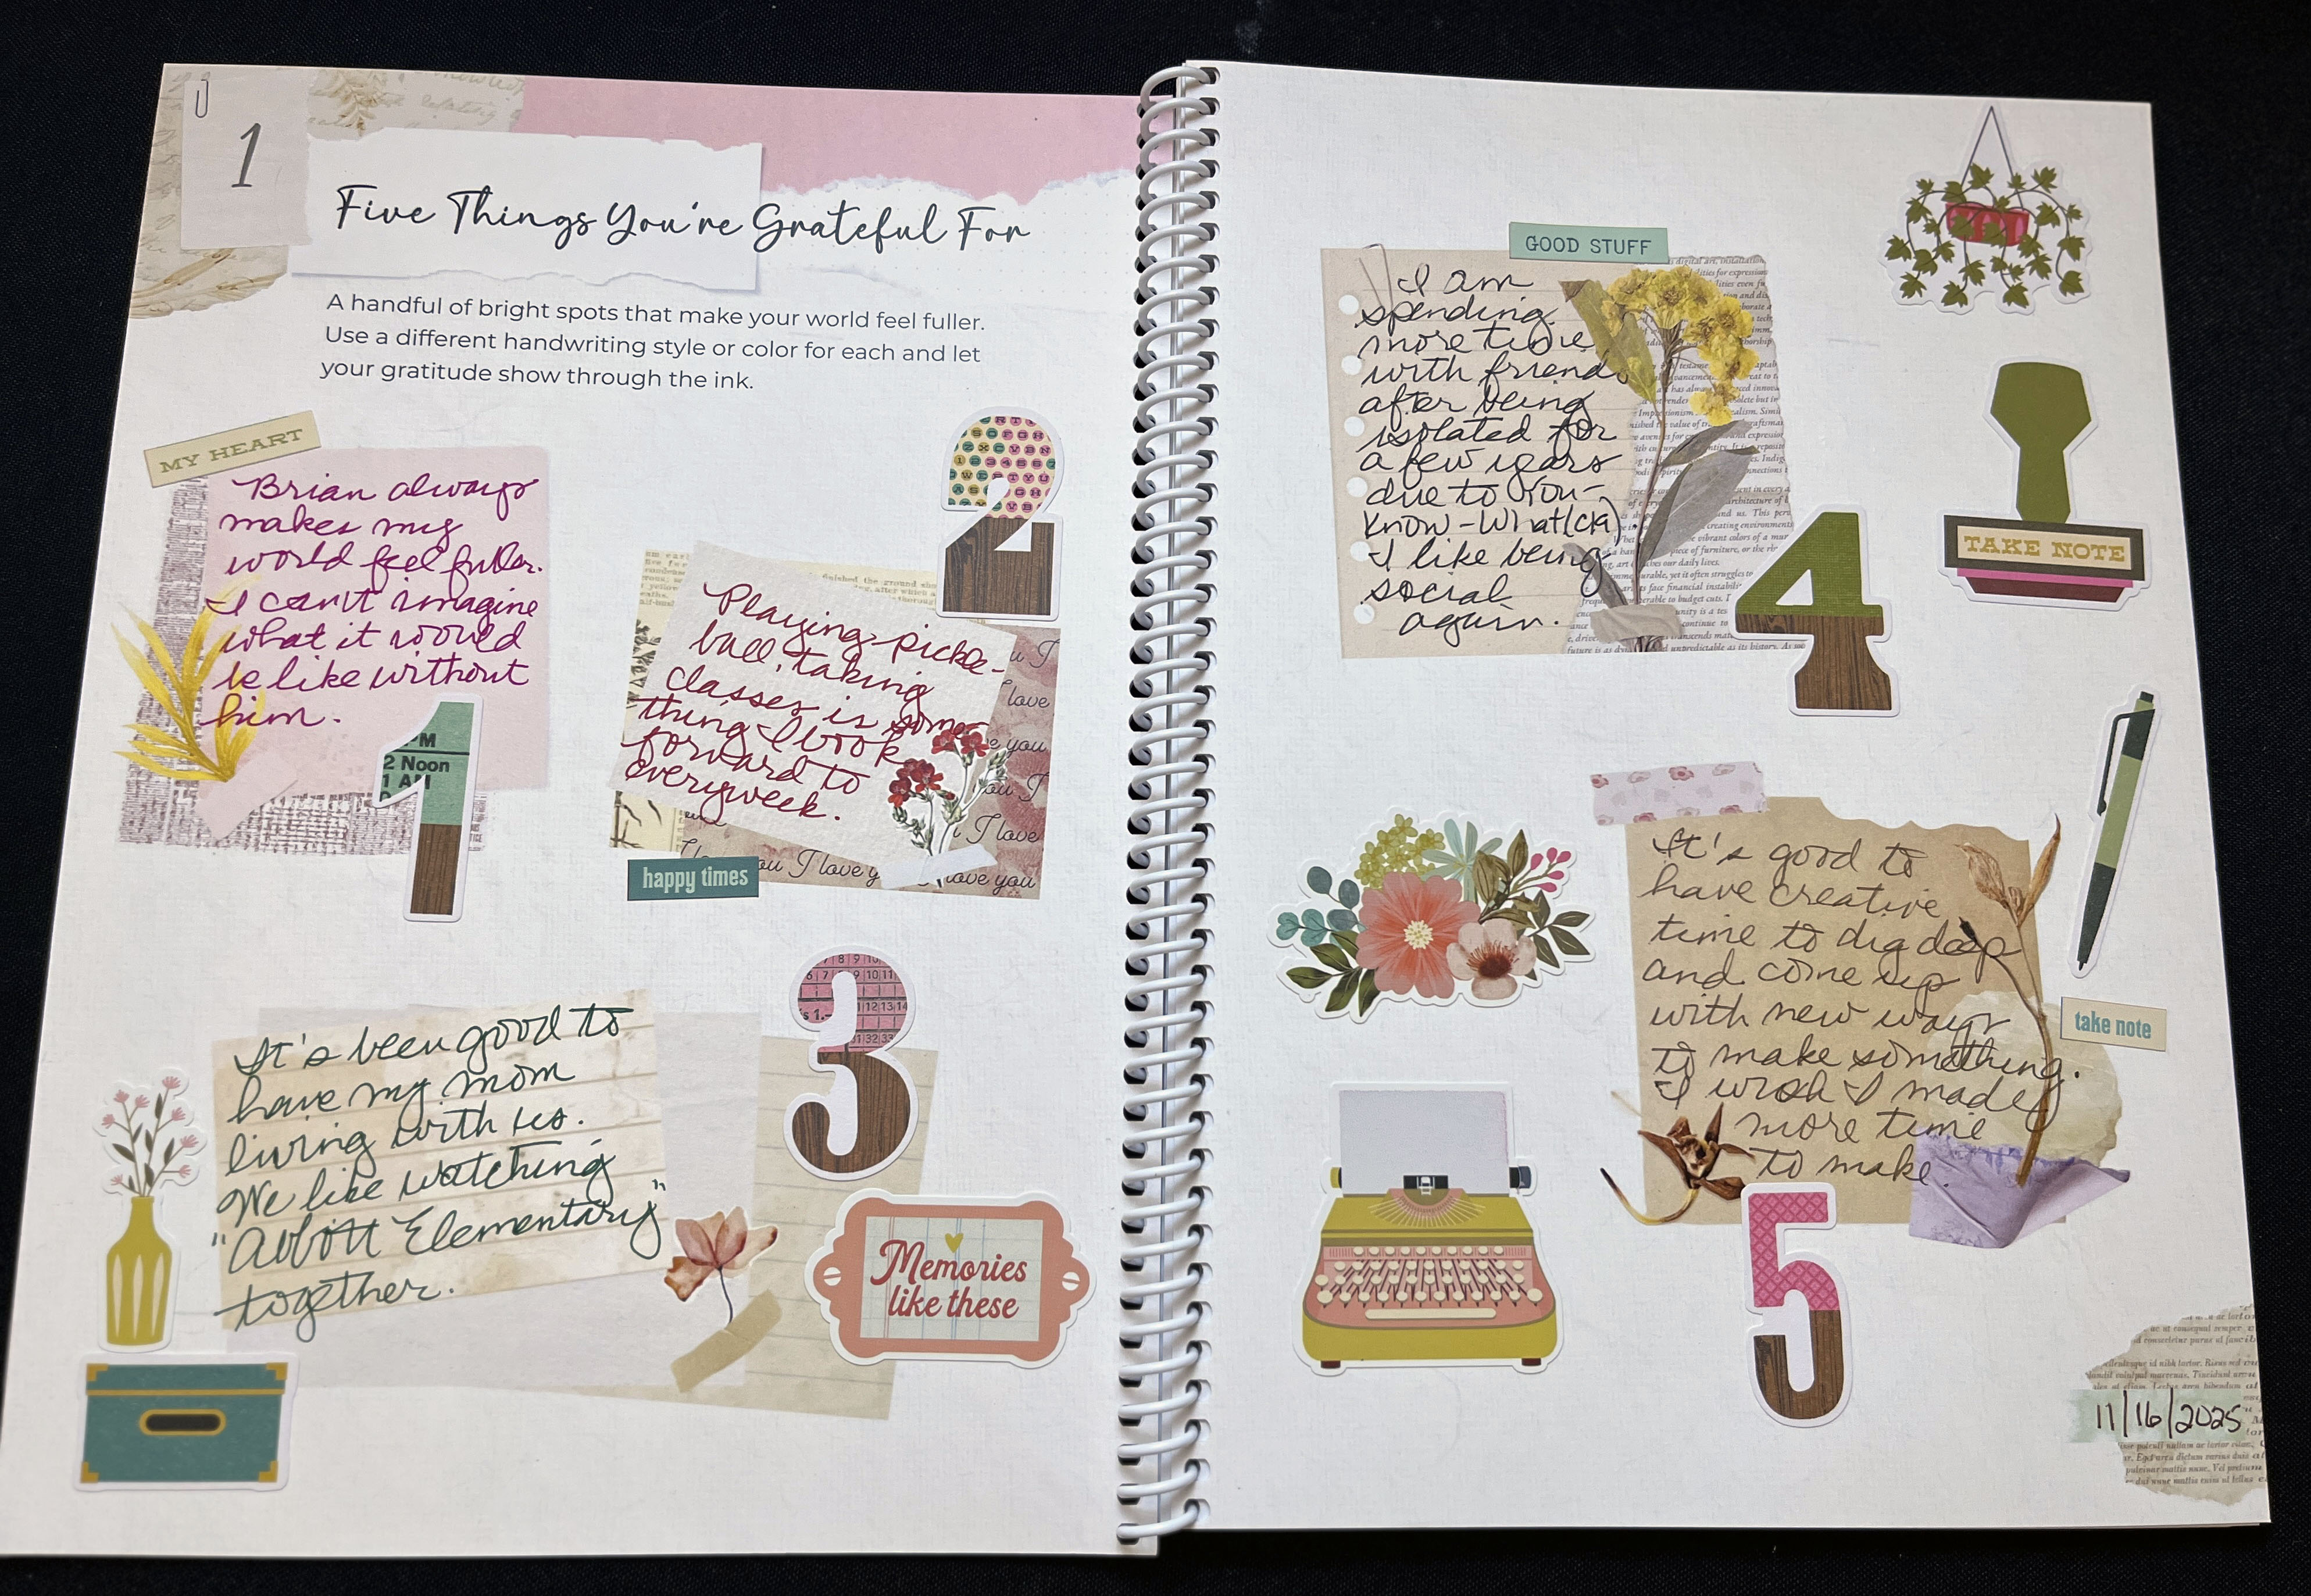 1
Five Things You're Grateful For
A handful of bright spots that make your world feel fuller.
Use a different handwriting style or color for each and let
your gratitude show through the ink.
MY HEART
Brian always
makes my
world feel fuller.
I can't imagine
what it would
be like without
him.
PM
2 Noon
1 AM
1
2
Playing pickle-
ball, taking
classes is some-
thing I look
forward to
everyweek.
happy times
I love
I love you
3
It's been good to
have my mom
living with us.
We like watching
"Abbott Elementary"
together.
Memories
like these
GOOD STUFF
I am
spending
more time
with friends
after being
isolated for
a few years
due to You-
Know-What(c19).
I like being
social
again.
4
TAKE NOTE
It's good to
have creative
time to dig deep
and come up
with new ways
to make something.
I wish I made
more time
to make.
take note
5
11/16/2025